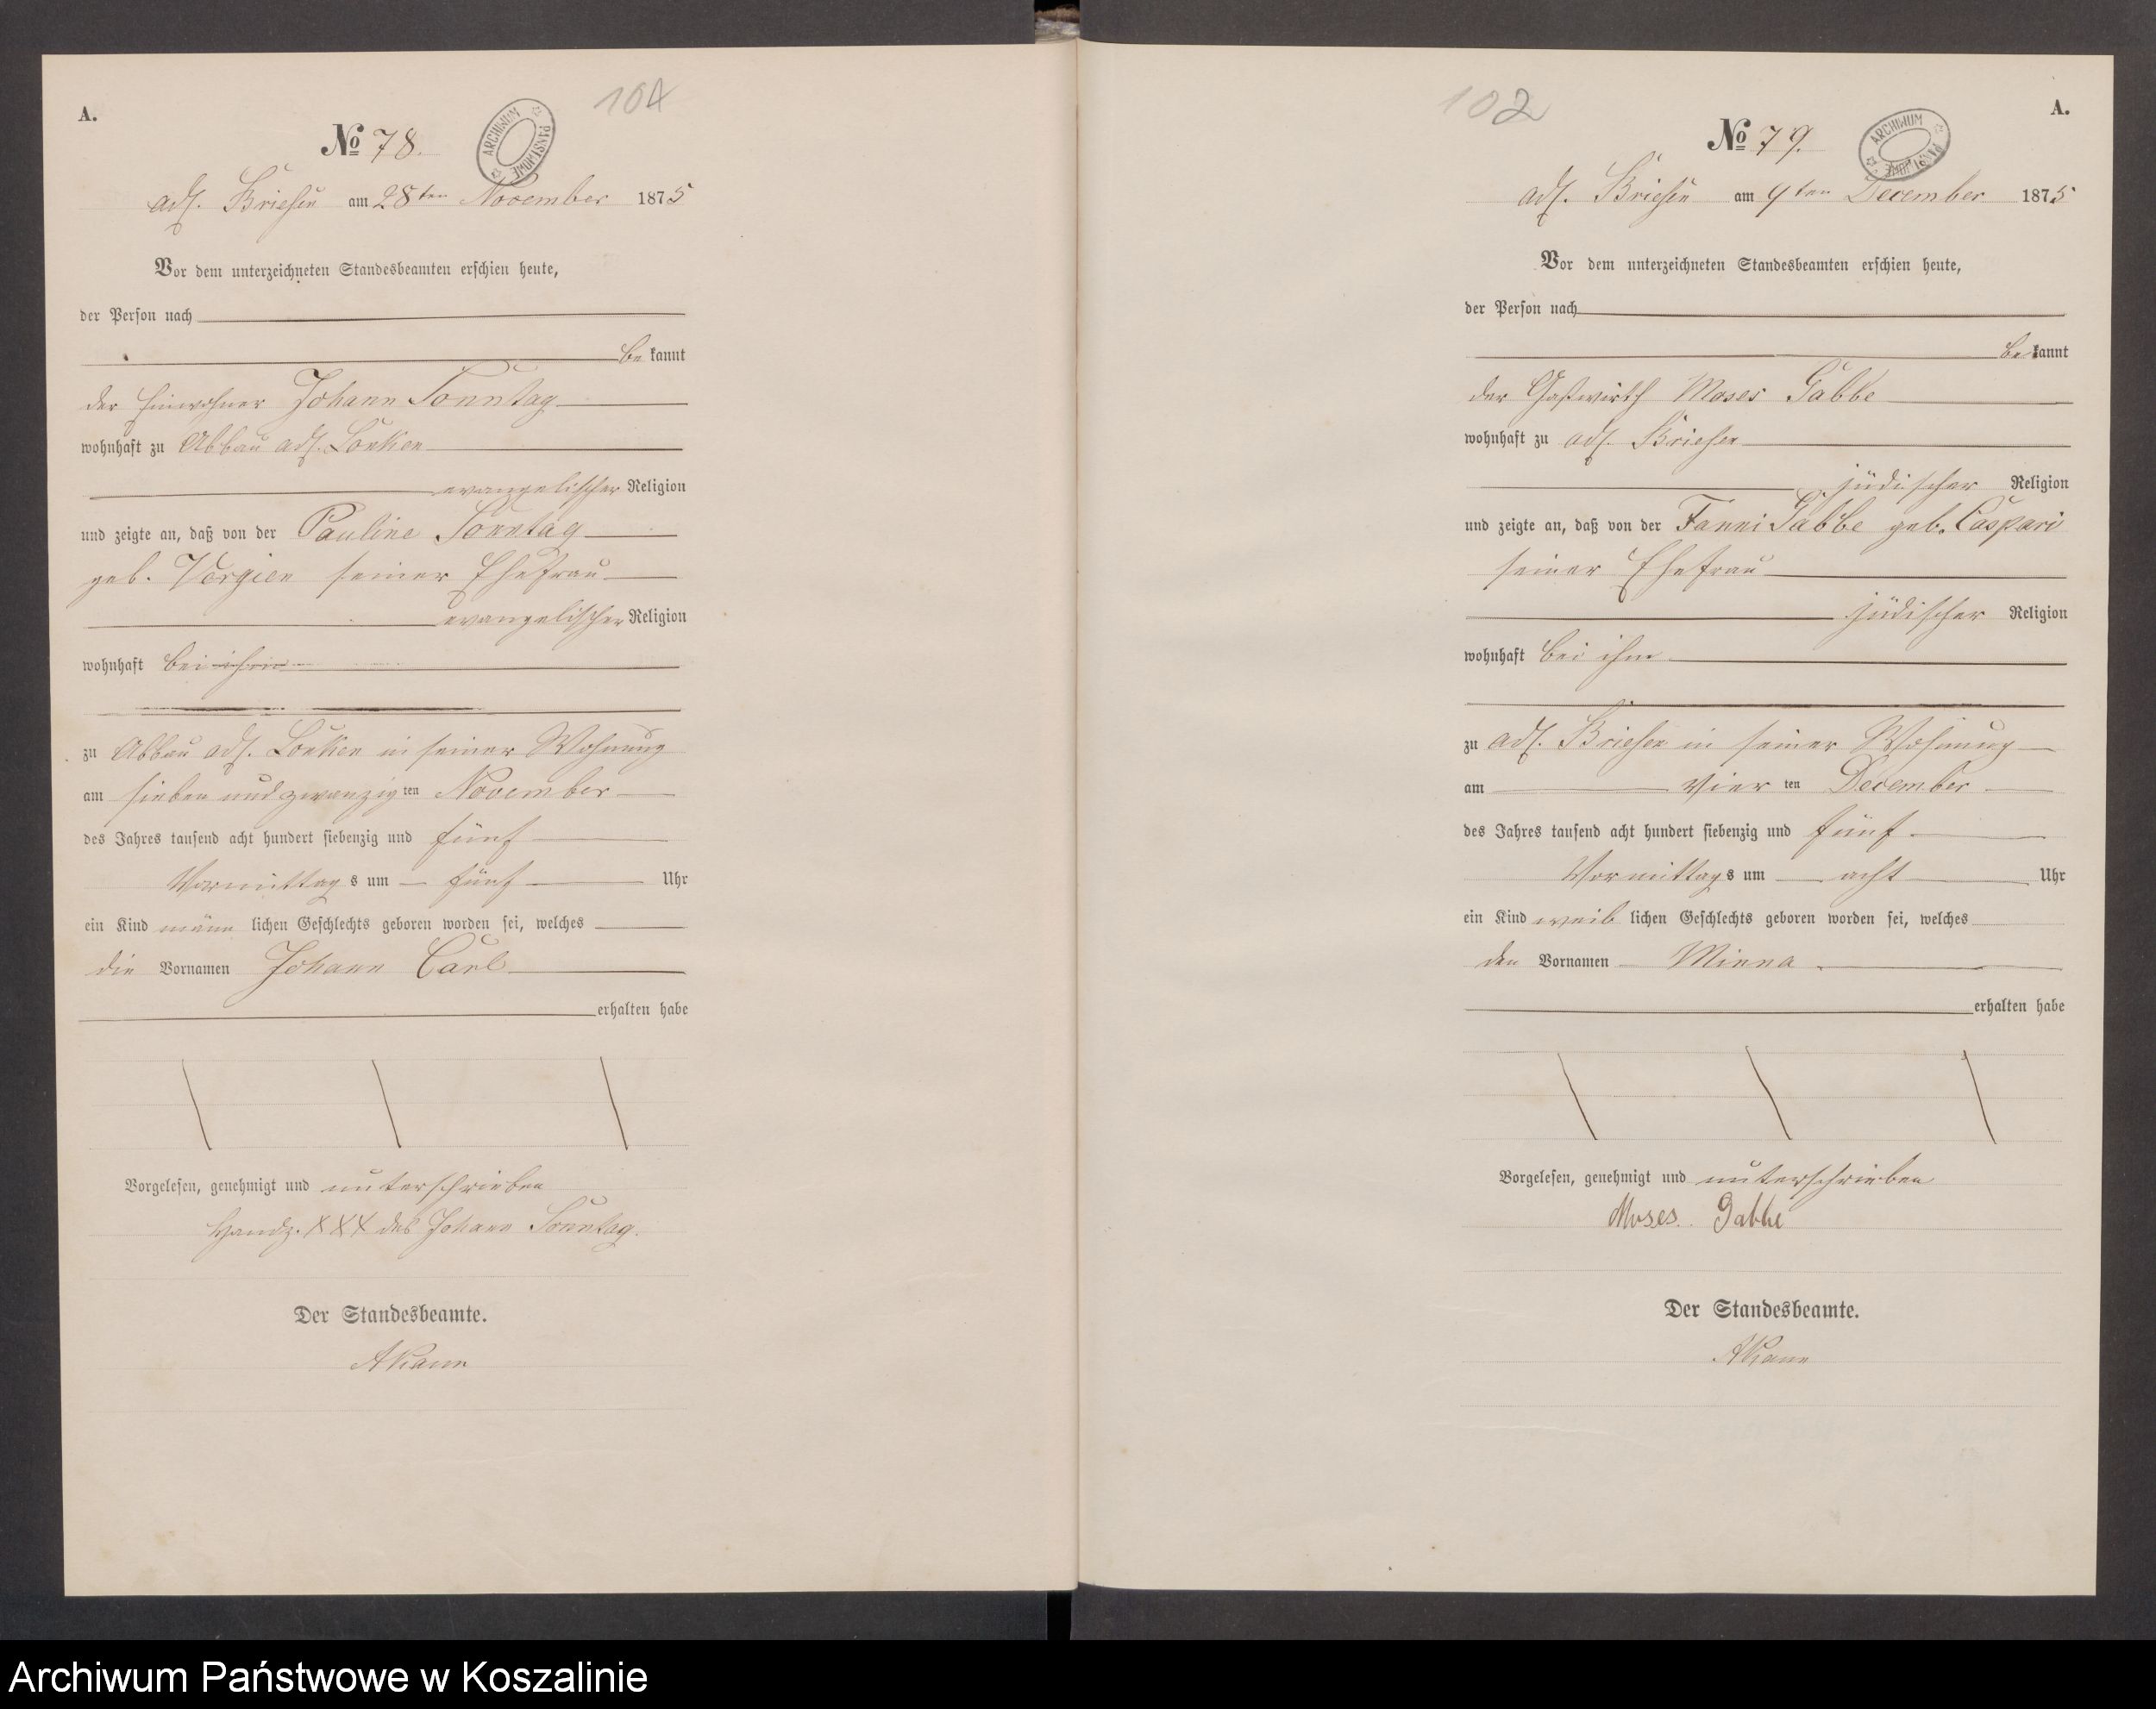 A.
104
№ 78.
ARCHIWUM PAŃSTWOWE
adl. Briesen am 28ten November 1875
Vor dem unterzeichneten Standesbeamten erschien heute,
der Person nach
bekannt
der Einwohner Johann Sonntag
wohnhaft zu Abbau adl. Lonken
evangelischer Religion
und zeigte an, daß von der Pauline Sonntag
geb. seiner Ehefrau
evangelischer Religion
wohnhaft bei ihm
zu Abbau adl. Lonken in seiner Wohnung
am sieben und zwanzigten November
des Jahres tausend acht hundert siebenzig und fünf
Vormittags um fünf Uhr
ein Kind männlichen Geschlechts geboren worden sei, welches
die Vornamen Johann Carl
erhalten habe
Vorgelesen, genehmigt und unterschrieben
Handz. XXX des Johann Sonntag.
Der Standesbeamte.
102
A.
№ 79.
ARCHIWUM PAŃSTWOWE
adl. Briesen am 4ten December 1875
Vor dem unterzeichneten Standesbeamten erschien heute,
der Person nach
bekannt
der Gastwirth Moses Gabbe
wohnhaft zu adl. Briesen
jüdischer Religion
und zeigte an, daß von der Fanni Gabbe geb. Caspari
seiner Ehefrau
jüdischer Religion
wohnhaft bei ihm
zu adl. Briesen in seiner Wohnung
am vierten December
des Jahres tausend acht hundert siebenzig und fünf
Vormittags um acht Uhr
ein Kind weiblichen Geschlechts geboren worden sei, welches
den Vornamen Minna
erhalten habe
Vorgelesen, genehmigt und unterschrieben
Moses Gabbe
Der Standesbeamte.
Archiwum Państwowe w Koszalinie